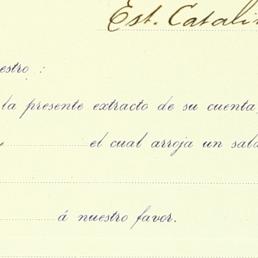 Est. Catali
estro :
la presente extracto de su cuenta,
el cual arroja un sald
á nuestro favor.